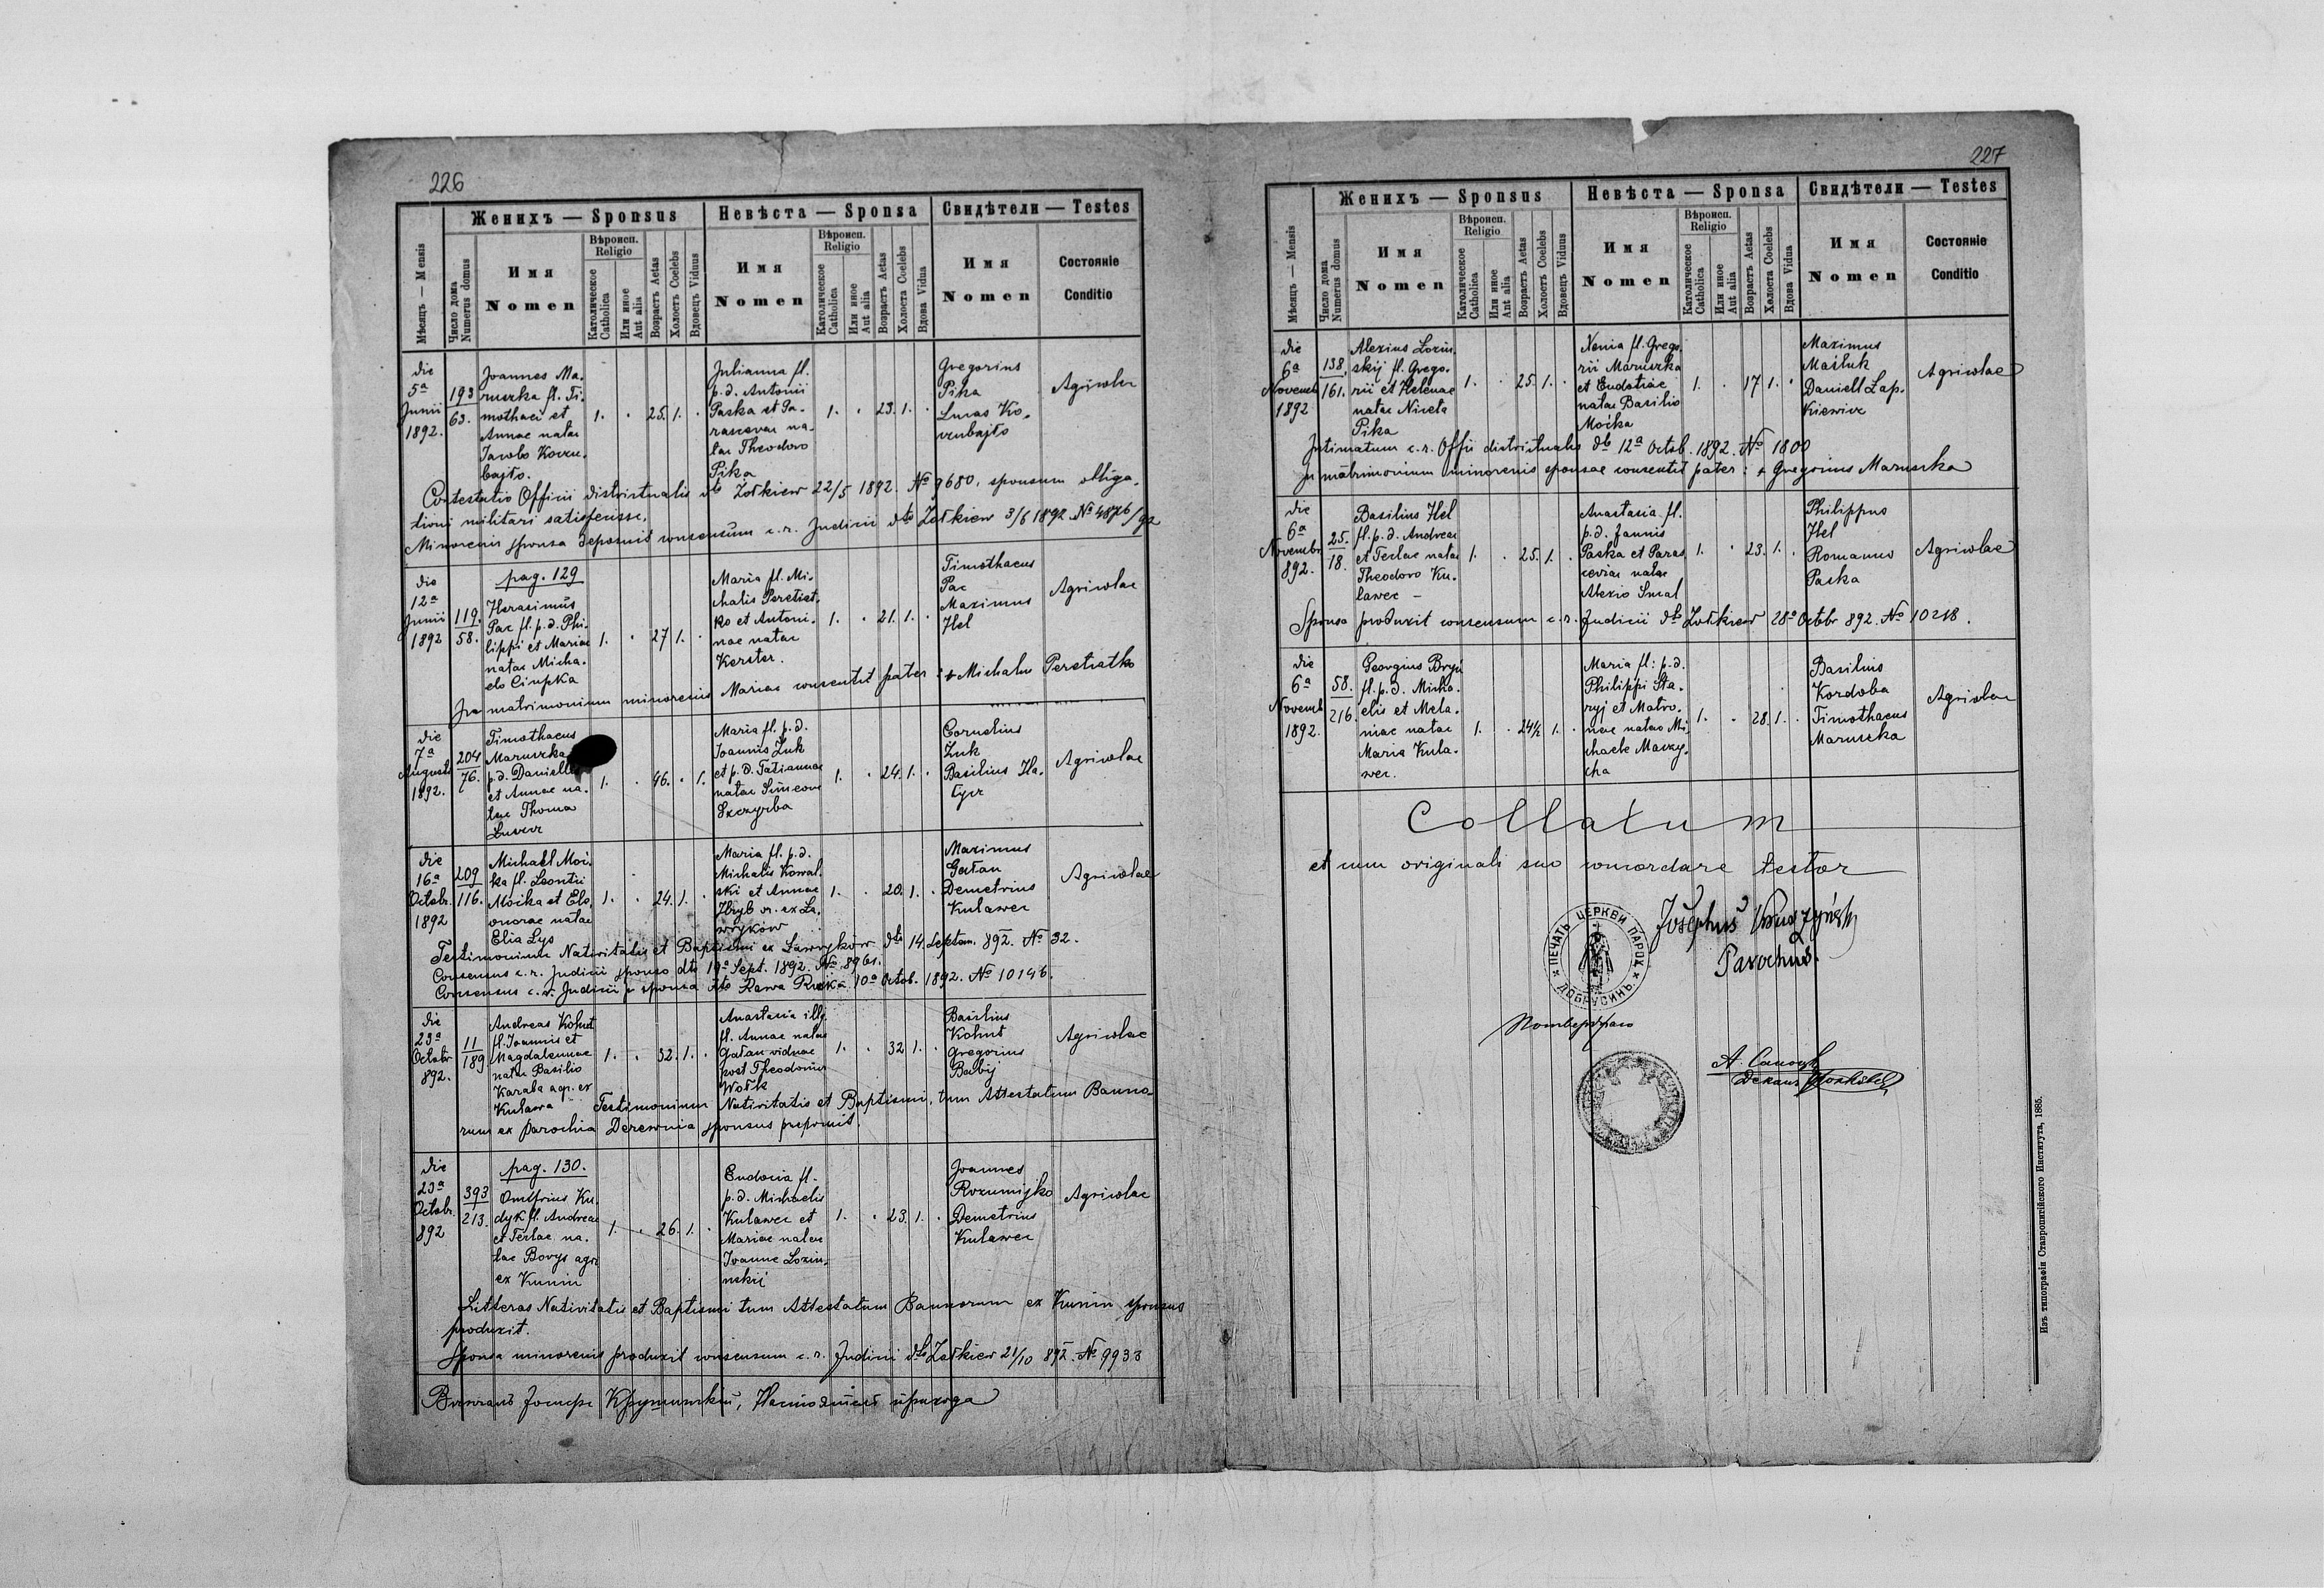 226
Женихъ — Sponsus
Невѣста — Sponsa
Свидѣтели — Testes
Мѣсяцъ — Mensis
Число дома
Numerus domus
Имя
Nomen
Вѣроисп.
Religio
Католическое
Catholica
Или иное
Aut alia
Возрастъ Aetas
Холостъ Coelebs
Вдовецъ Viduus
Имя
Nomen
Вѣроисп.
Religio
Католическое
Catholica
Или иное
Aut alia
Возрастъ Aetas
Холоста Coelebs
Вдова Vidua
Имя
Nomen
Состояніе
Conditio
die
5a
Junii
1892.
193
63.
Joannes Ma-
ruszka fl. Ti-
mothaei et
Annae natae
Jacobo Koczu-
bajło.
1. . 25. 1. .
Julianna fl.
p.d. Antonii
Paska et Pa-
rascevae na-
tae Theodoro
Pika
1. . 23. 1. .
Gregorius
Pika
Lucas Ko-
czubajło
Agricolae
Contestatio Officii districtualis dto Żołkiew 22/5 1892. No 9680, sponsum obliga-
tioni militari satisfecisse.
Minorenis sponsa deposuit consensum c.r. Judicii dto Żołkiew 3/6 1892 No 4876/92
die
12a
Junii
1892
119.
58.
pag. 129
Herasimus
Pac fl. p.d. Phi-
lippi et Mariae
natae Micha-
elo Ciupka
1. . 27 1. .
Maria fl. Mi-
chalis Peretiat-
ko et Antoni-
nae natae
Kerster.
1. . 21. 1. .
Timothaeus
Pac
Maximus
Hel
Agricolae
In matrimonium minorenis Mariae consentit pater: + Michalus Peretiatko
die
7a
Augusti
1892.
204
76.
Timothaeus
Maruszka
p.d. Danielis
et Annae na-
tae Thoma
1. . 46. . 1.
Maria fl. p.d.
Joannis Żuk
et p.d. Tatiannae
natae Simeone
Szczyrba
1. . 24. 1. .
Cornelius
Żuk
Basilius Ha-
Agricolae
die
16a
Octobr.
1892
209
116.
Michael Moś-
ka fl. Leontii
Mośka et Ele-
onorae natae
Elia Lys
1. . 24. 1. .
Maria fl. p.d.
Michalis Kowal-
ski et Annae
Hryb or. ex Ła-
wryków
1. . 20. 1. .
Maximus
Gałan
Demetrius
Kulawec
Agricolae
Testimonium Nativitatis et Baptismi ex Ławryków dto 14. Septem. 892. No 32.
Consensus c.r. Judicii sponso dto 19a Sept. 1892. No 8961.
Consensus c.r. Judicii p sponsa dto Rawa Ruska 10a Octob. 1892. No 10146.
die
23a
Octobr
892.
11
189.
Andreas Kohut
fl. Joannis et
Magdalennae
natae Basilio
Karaba agr. ex
Kulawa
1. . 32. 1. .
Anastasia ill.
fl. Annae natae
Gałan viduae
post Theodorum
Wołk
1. . 32 1. .
Basilius
Kohut
Gregorius
Babij
Agricolae
Testimonium Nativitatis et Baptismi, tum Attestatum Banno-
rum ex parochia Derewnia sponsus
die
23a
Octobr.
892
393
213.
pag. 130.
Onufrius Ku-
dyk fl. Andreae
et Teclae na-
tae Borys agr.
ex Kunin
1. . 26. 1. .
Eudocia fl.
p.d. Michaelis
Kulawec et
Mariae natae
Joanne Lozin-
nskij
1. . 23. 1. .
Joannes
Rozumijko
Demetrius
Kulawec
Agricolae
Litteras Nativitatis et Baptismi tum Attestatum Bannorum ex Kunin sponsus
produxit.
Sponsa minorenis produxit consensum c.r. Judicii dto Żołkiew 21/10 892. No 9933
227
Женихъ — Sponsus
Невѣста — Sponsa
Свидѣтели — Testes
Мѣсяцъ — Mensis
Число дома
Numerus domus
Имя
Nomen
Вѣроисп.
Religio
Католическое
Catholica
Или иное
Aut alia
Возрастъ Aetas
Холостъ Coelebs
Вдовецъ Viduus
Имя
Nomen
Вѣроисп.
Religio
Католическое
Catholica
Или иное
Aut alia
Возрастъ Aetas
Холоста Coelebs
Вдова Vidua
Имя
Nomen
Состояніе
Conditio
die
6a
Novemb
1892
138.
161.
Alexius Lozin-
skij fl. Grego-
rii et Helenae
natae Niceta
Pika
1. . 25. 1. .
Xenia fl. Grego-
rii Maruszka
et Eudoxiae
natae Basilio
Mośka
1. . 17 1. .
Maximus
Maśluk
Daniell Łap-
kiewicz
Agricolae
Intimatum c.r. Offii districtualis dto 12a Octob. 1892. No 1800
In matrimonium minorenis sponsae consentit pater: + Gregorius Maruszka
die
6a
Novembr
892.
25.
18.
Basilius Hel
fl. p.d. Andreae
et Teclae natae
Theodoro Ku-
lawec –
1. . 25. 1. .
Anastasia fl.
p.d. Joannis
Paska et Paras-
ceviae natae
Alexio Smal
1. . 23. 1. .
Philippus
Hel
Romanus
Paska
Agricolae
Sponsa produxit consensum c.r. Judicii dto Żołkiew 28a Octobr 892. No 10218.
die
6a
Novemb
1892.
58.
216.
Georgius Bryń
fl. p.d. Micha-
elis et Mela-
niae natae
Maria Kula-
wec.
1. . 24½ 1. .
Maria fl: p.d.
Philippi Sta-
ryj et Matro-
nae natae Mi-
chaele Maczy-
cha
1. . 28. 1. .
Basilius
Kordoba
Timothaeus
Maruszka
Agricolae
Collatum
et cum originali suo concordare testor
Josephus
Parochus.
ПЕЧАТЬ ЦЕРКВИ ПАРОХ. ДОБРУСИНЪ.
Деканъ
Изъ типографіи Ставропигійского Института, 1885.